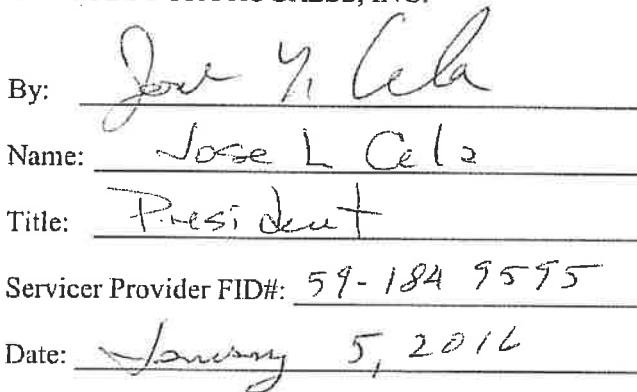 SALES, INC.
By:
Name: Jose L Cela
Title: President
Servicer Provider FID#: 59-184 9595
Date: January 5, 2016